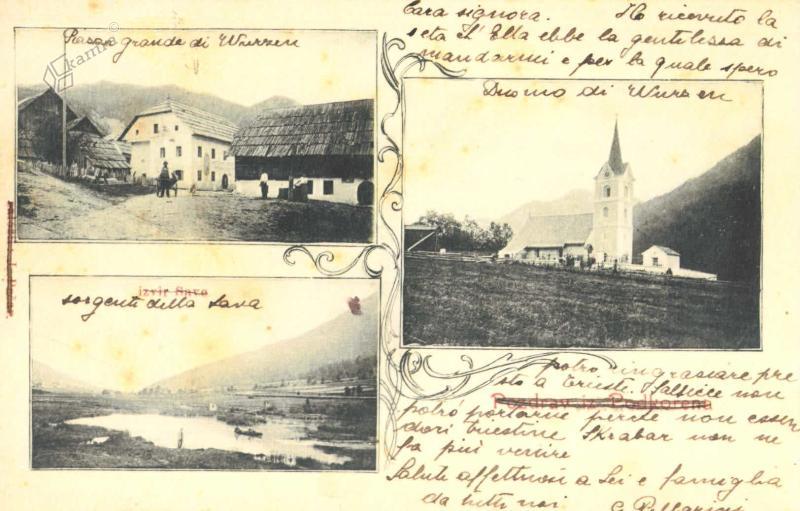 Cara signora. Ho ricevuto la
seta ch' Ella ebbe la gentilessa di
mandarmi e per la quale spero
Piasa grande di Wurzen
© kamra
Duomo di Wurzen
izvir Save
sorgenti della Sava
potrò ringrasiare pre
sto a Trieste. Salsicce non
Pozdrav iz Podkorena
potrò portarne perchè non essen
dovi triestine Skrabar non ne
fa più venire
Saluti affettuosi a Lei e famiglia
da tutti noi G. Pellarini